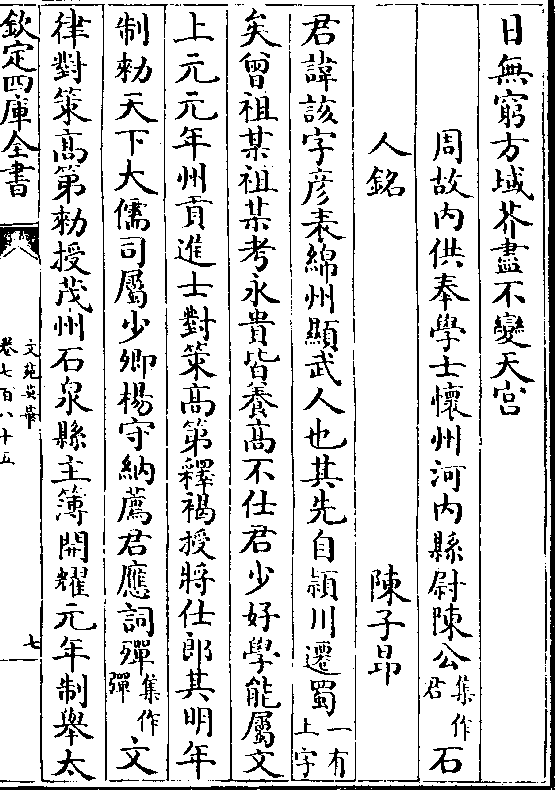 日無窮方城芥盡不變天宮
周故內供奉學士懷州河內縣尉陳公集作君石
人銘 陳子昂
君諱該字彦表綿州顯武人也其先自潁川遷蜀一有上字
矣曾祖某祖某考永貴皆養高不仕君少好學能屬文
上元元年州貢進士對策高第釋褐授將仕郎其明年
制勑天下大儒司屬少卿楊守納薦君應詞殫集作彈文
律對策高第勑授茂州石泉縣主簿開耀元年制舉太
欽定四庫全書
文苑英華
卷七百八十五
七